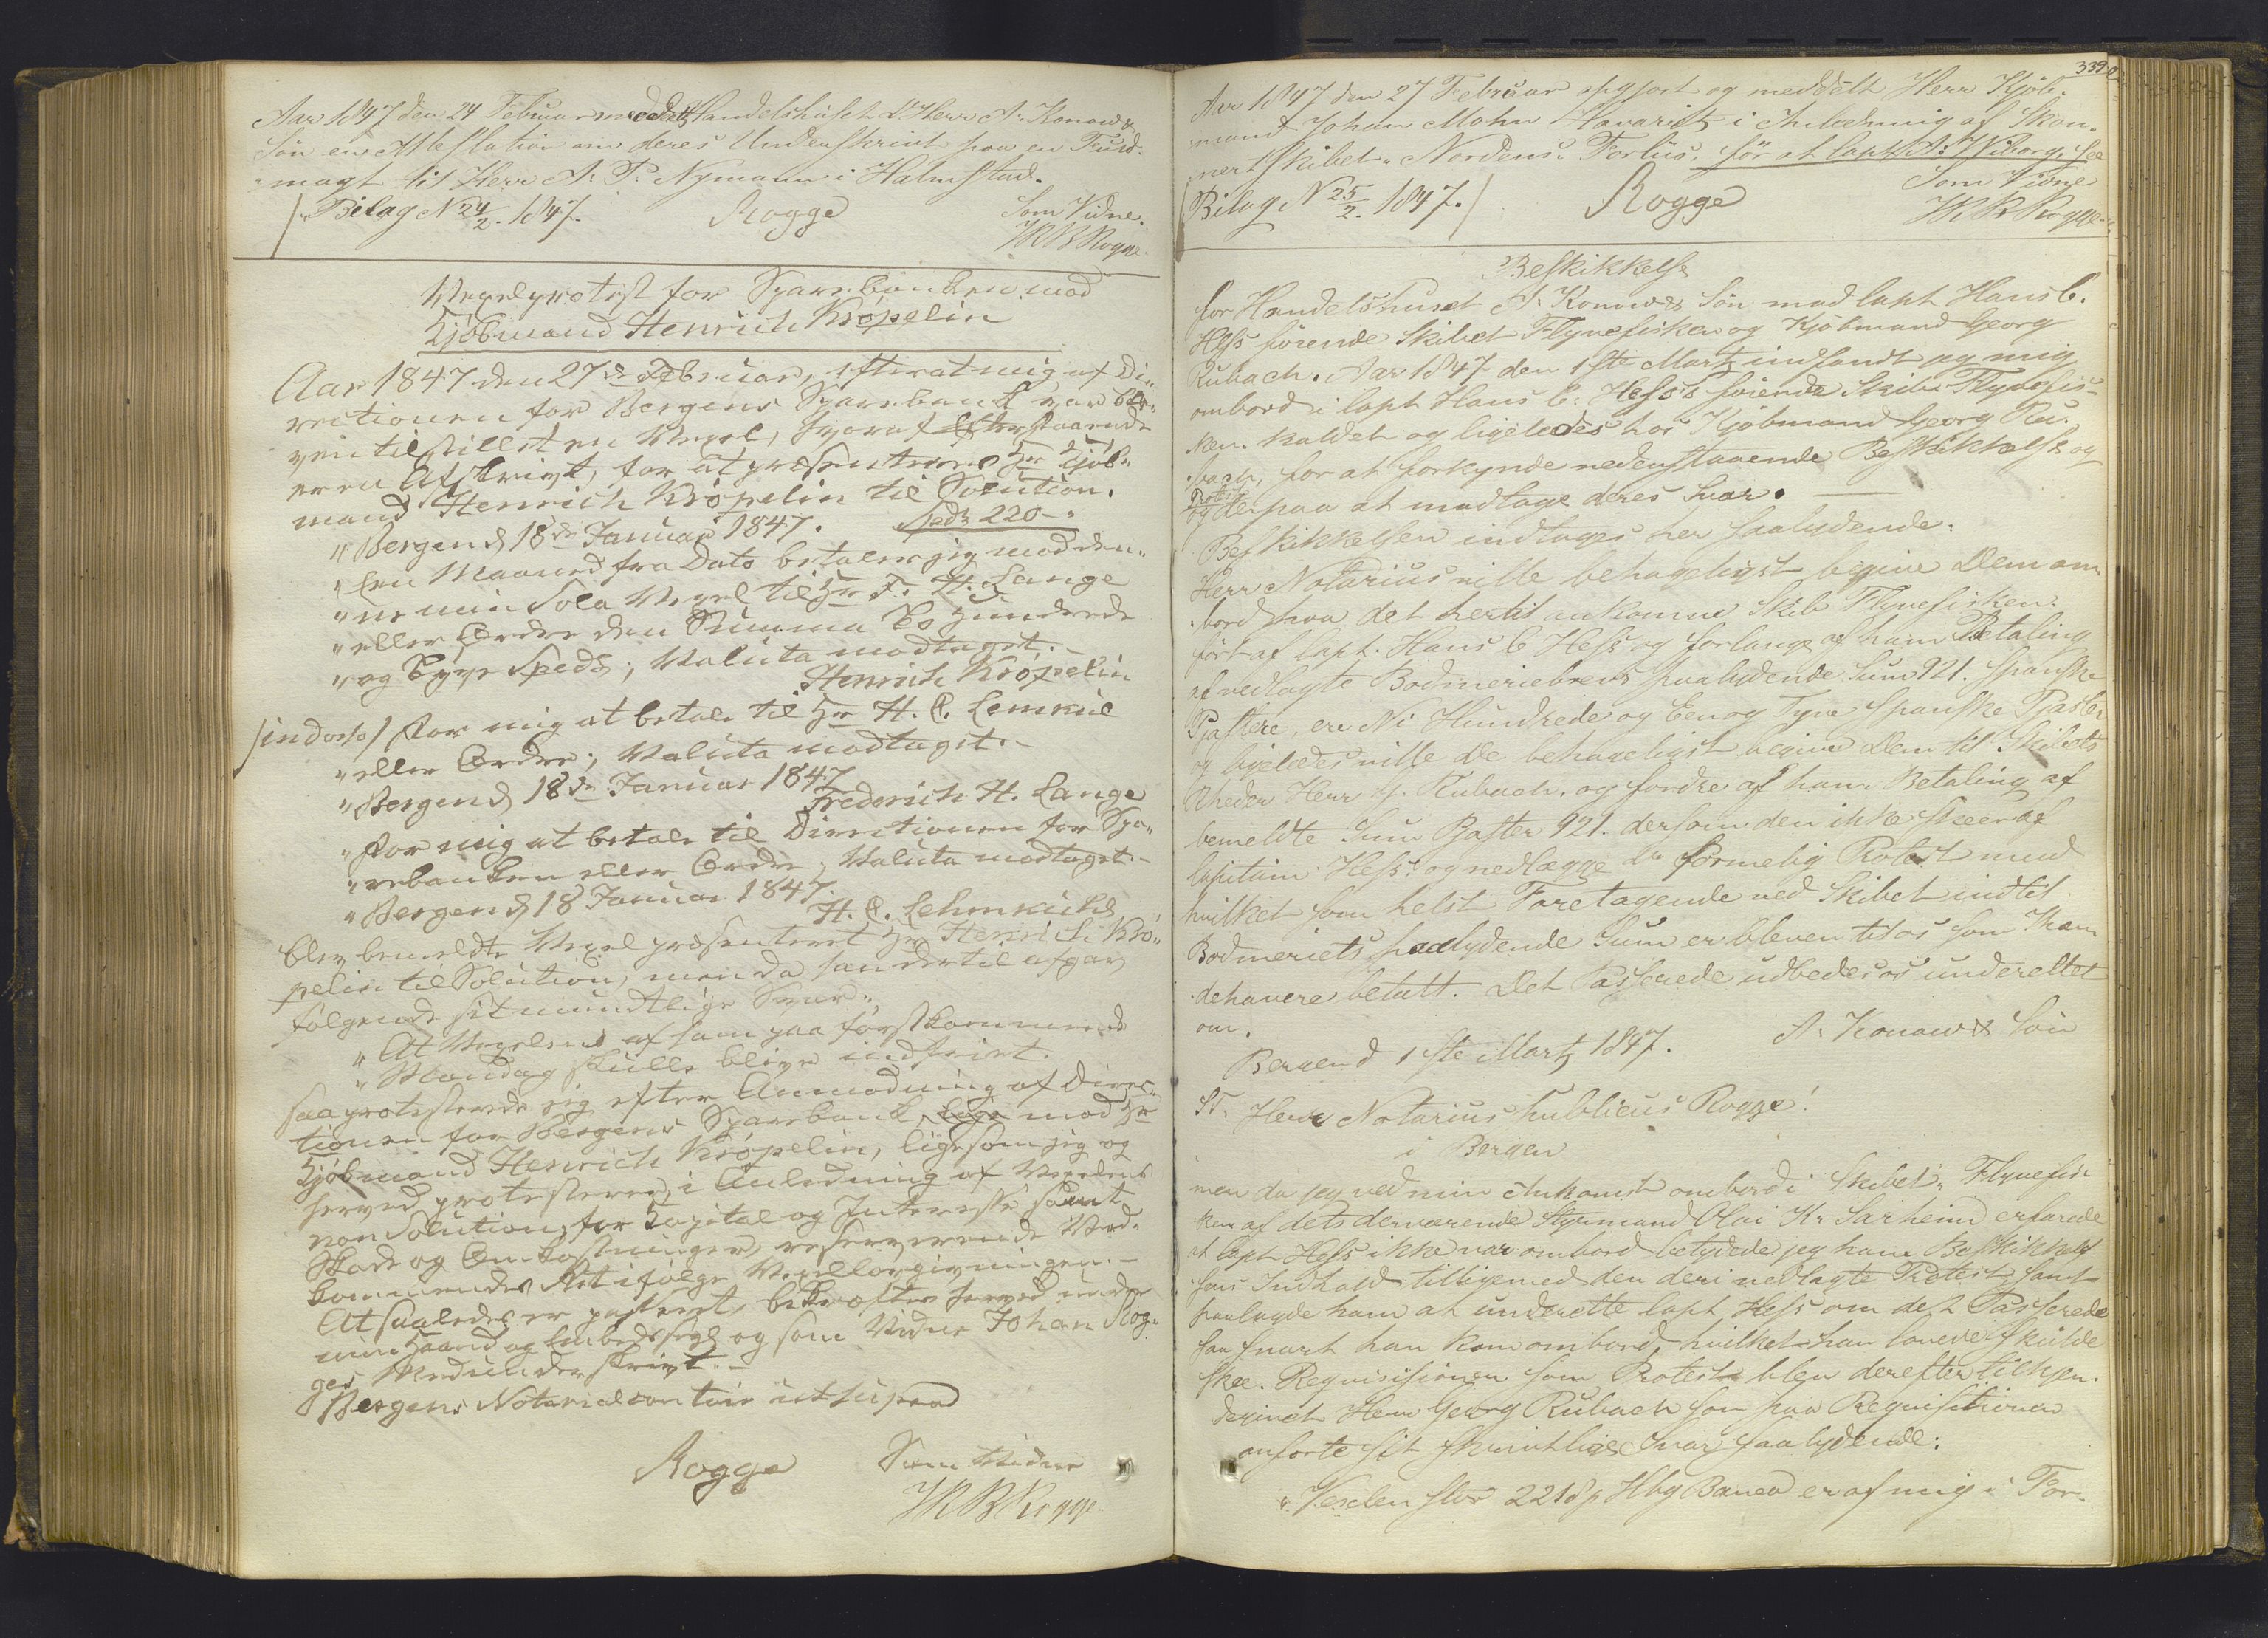 Aar 1847 den 24 Februar meddelt Handelshuset D'Herr A: Konow &
Søn en Attestation om deres Underskrivt paa en Fuld-
magt til Herr A: P: Nymann i Halmstad.
Bilag N 24/2. 1847.
Rogge
Som Vidne.
JKB Rogge
Vexelprotest for Sparebanken mod
Kjøbmand Henrich Krøpelin
Aar 1847 den 27de Februar, efterat mig af Di„
rectionen for Bergens Sparebank var ble„
ven tilstillet en Vexel, hvoraf efterstaaende
er en Afskrivt, for at præsenteres Hr Kjøb„
mand Henrich Krøpelin til Solution.
„Bergen d 18de Januar 1847. Spd 220 „
„Een Maaned fra Dato betaler jeg mod den„
„ne min Sola Vexel til Hr F. H. Lange
„eller Ordre den Summa To Hundrede
„og Tyve Spds; Valuta modtaget.
Henrich Krøpelin
/indorso/ For mig at betale til Hr H. C. Lemkul
„eller Ordre; Valuta modtaget.-
„Bergen d 18de Januar 1847
Frederich H. Lange
„For mig at betale til Directionen for Spa„
„rebanken eller Ordre; Valuta modtaget.-
„Bergen d 18 Januar 1847.
H. C. Lehmkuhl
blev bemeldte Vexel præsenteret Hr Henrich Krø„
pelin til Solution, men da han dertil afgav
følgende sit mundtlige Svar„
„At Vexelen af ham paa førstkommende
„Mandag skulle blive indfriet.
saa protesterede jeg efter Anmodning af Direc„
tionen for Bergens Sparebank mod Hr
Kjøbmand Henrich Krøpelin, ligesom jeg og
herved protesterer, i Anledning af Vexelens
non Solution, for Capital og Interesse samt
Skade og Omkostninger, reserverende Ved„
kommendes Ret ifølge Vexellovgivningen.-
At saaledes er passeret, bekræftes herved under
min Haand og Embedssegl og som Vidne Johan Rog„
ges Medunderskrivt.-
Bergens Notarialcontoir ut supra
Rogge
Som Vidne
JKB Rogge
339.
Aar 1847 den 27 Februar opgjort og meddelt Herr Kjøb-
mand Johan Mohn Havariet i Anledning af Skon-
nertskibet „Nordens“ Forliis. før at Capt A: Wiborg. See
Bilag N 25/2. 1847.
Rogge
Som Vidne
JKB Rogge
Beskikkelse
for Handelshuset A: Konow & Søn mod Capt Hans C.
Hess førende Skibet Flyvefisken og Kjøbmand Georg
Rubach. Aar 1847 den 1ste Martz indfandt jeg mig
ombord i Capt Hans C: Hess's førende Skib Flyvefis-
ken kaldet og ligeledes hos Kjøbmand Georg Ru-
bach, for at forkynde nedenstaaende Beskikkelse og
Protest
og derpaa at modtage deres Svar.
Beskikkelsen indtages her saalydende:
Herr Notarius ville behageligst begive Dem om-
bord paa det hertil ankomne Skib Flyvefisken
ført af Capt. Hans C Hess og forlange af ham Betaling
af vedlagte Bodmeriebrevs paalydende Sum 921. Spanske
Pjastere, er Ni Hundrede og Een og Tyve Spanske Pjaster
og ligeledes ville De behageligst begive Dem til Skibets
Rheder Herr G. Rubach, og fordre af ham Betaling af
bemeldte Sum Pjaster 921. dersom den ikke skeer af
Capitain Hess. og nedlægge De formelig Protest mod
hvilket som helst Foretagende ved Skibet indtil
Bodmeriets paalydende Sum er bleven til os som Ihæn-
dehavere betalt. Det Passerede udbedes os underettet
om.
Bergen d 1ste Martz 1847.
A: Konow & Søn
ST. Herr Notarius Publicus Rogge!
i Bergen
men da jeg ved min Ankomst ombord i Skibet „Flyvefis-
ken af dets derværende Styrmand Olai Kr Sarheim erfarede
at Capt Hess ikke var ombord betydede jeg ham Beskikkel-
sens Indhold tilligemed den deri nedlagte Protest samt
paalagde ham at underette Capt Hess om det Passerede
saa snart han kom ombord, hvilket han lovede skulde
skee. Requisisionen som Protest blev derefter tilkjen-
degivet Herr Georg Rubach som paa Requisitionen
anførte sit skrivtlige Svar saalydende:
„Vexelen stor 2218 p Hbg Banco er af mig i For-